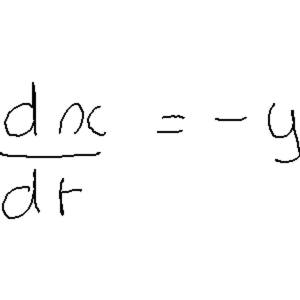 dx/dt = -y